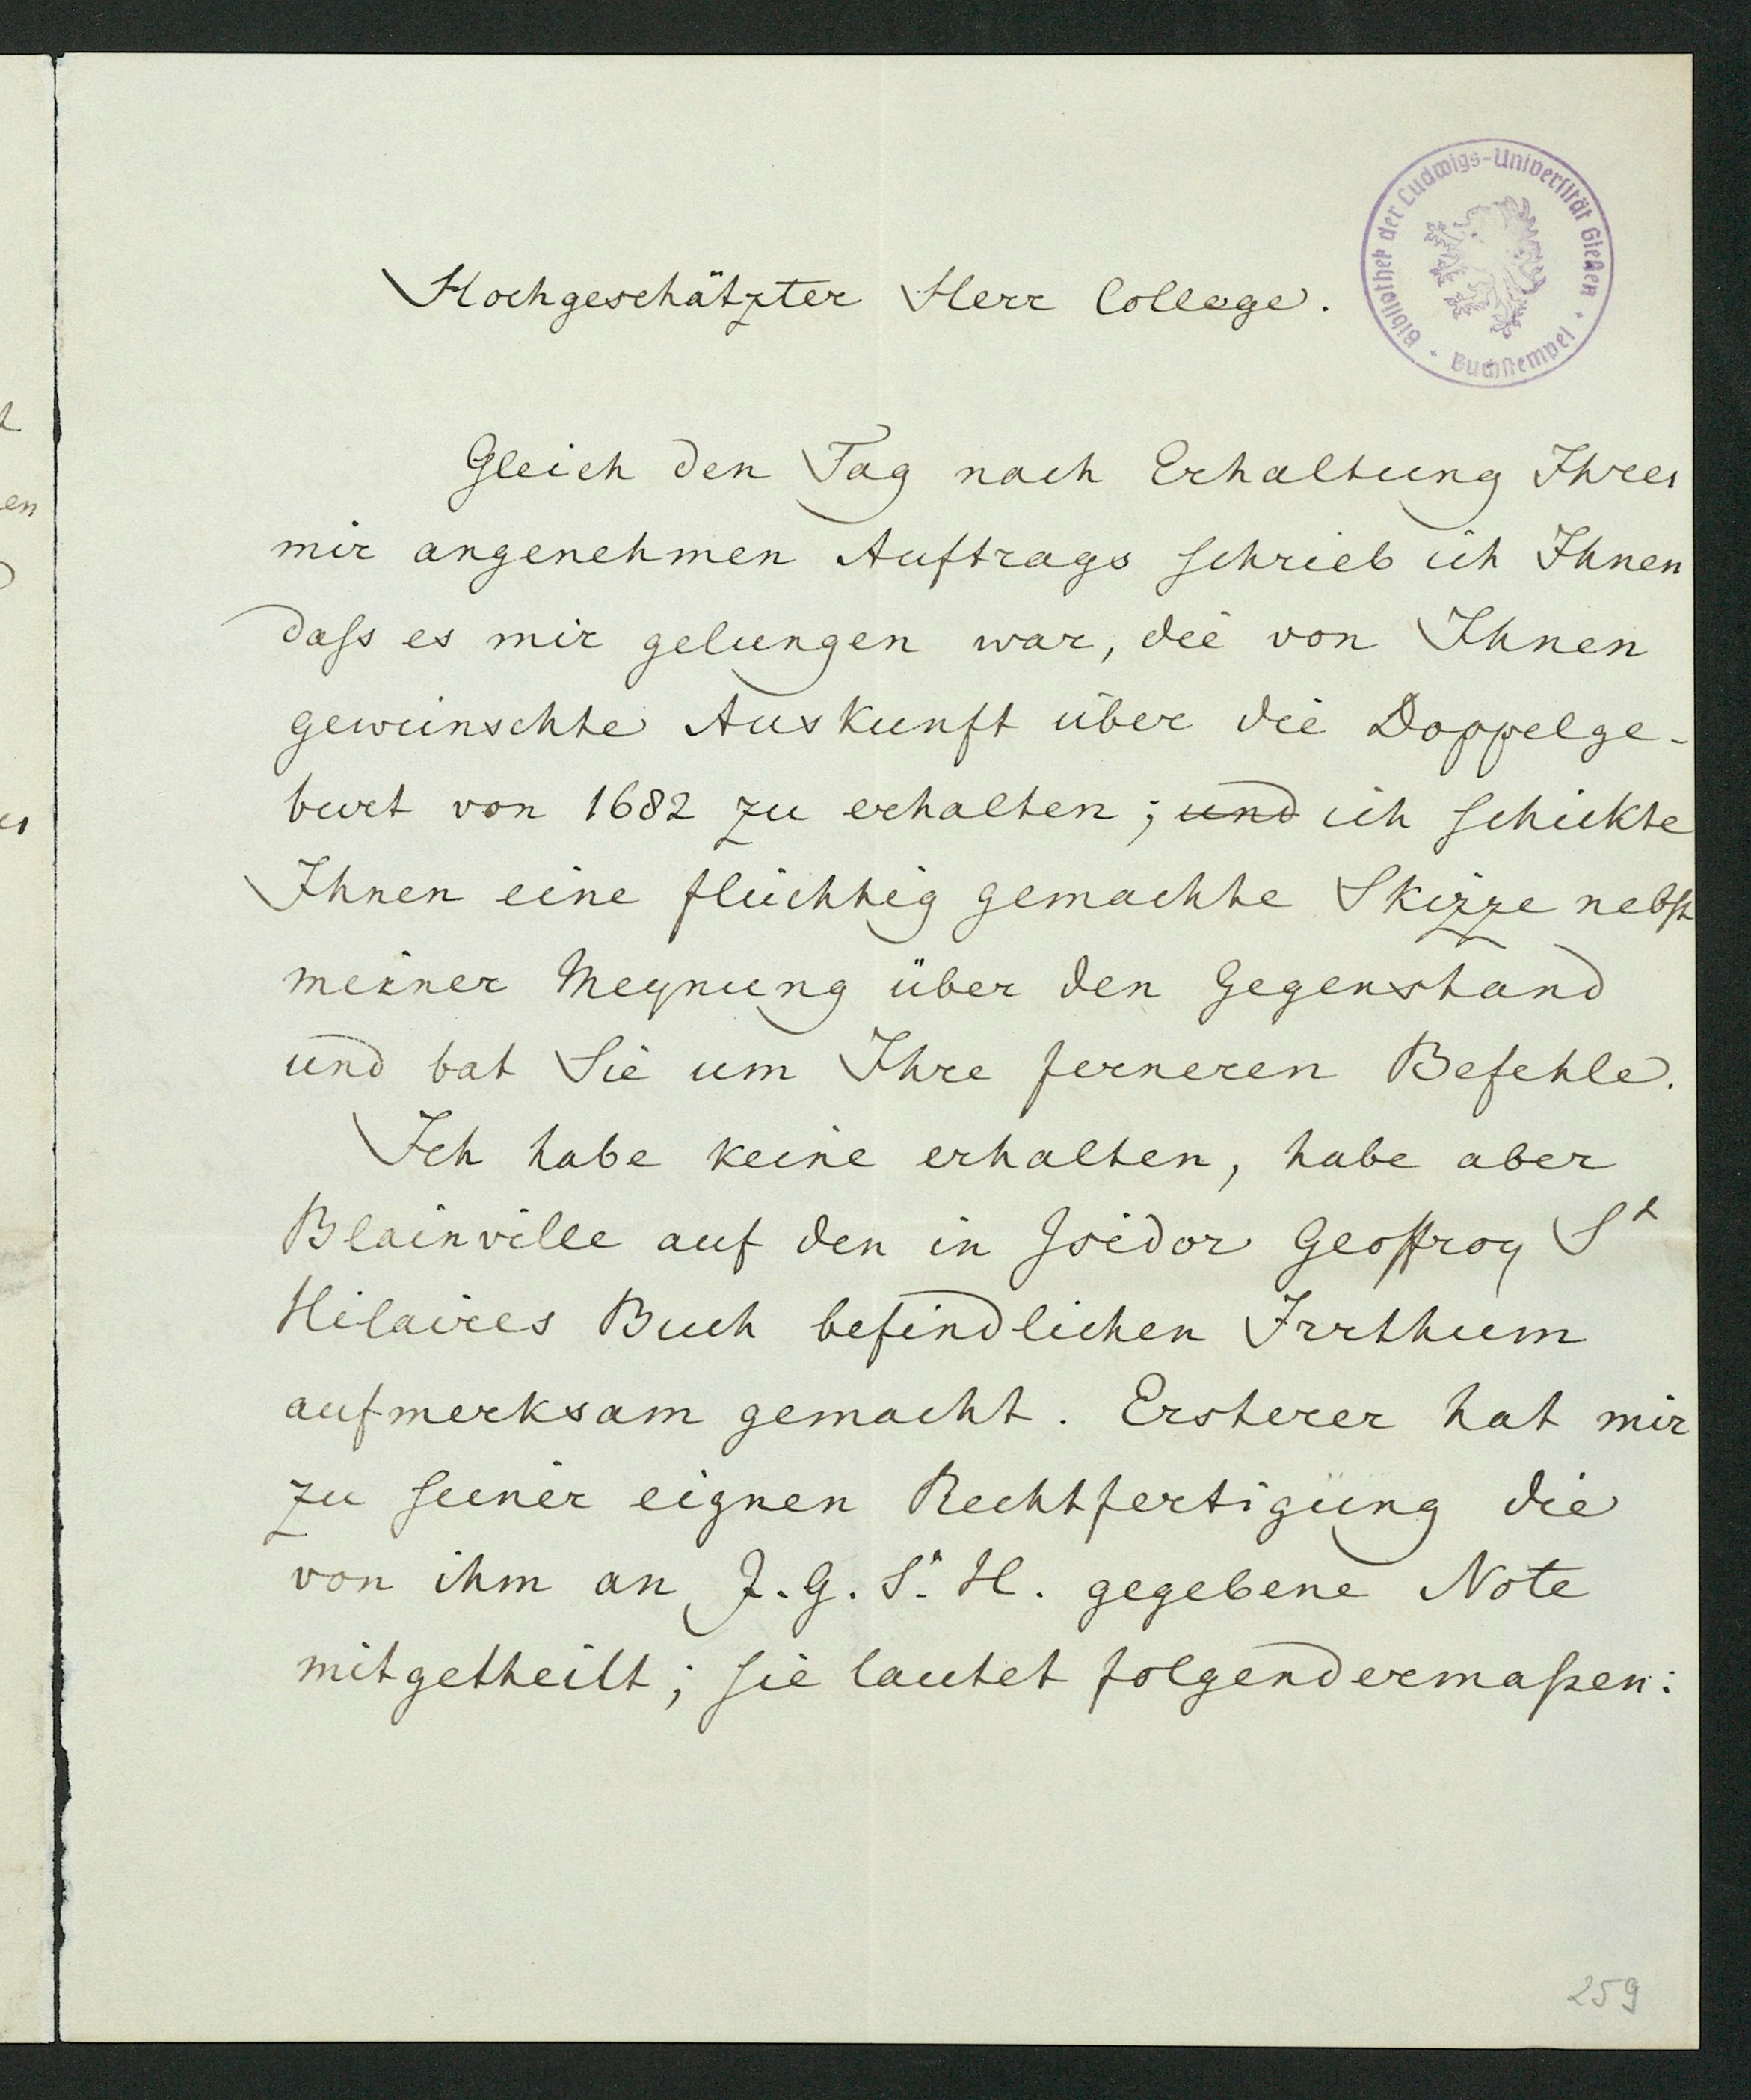 Bibliothek der Ludwigs-Universität Gießen
Buchstempel
Hochgeschätzter Herr College.
Gleich den Tag nach Erhaltung Ihres
mir angenehmen Auftrags schrieb ich Ihnen
dass es mir gelungen war, die von Ihnen
gewünschte Auskunft über die Doppelge-
burt von 1682 zu erhalten; und ich schickte
Ihnen eine flüchtig gemachte Skizze nebst
meiner Meynung über den Gegenstand
und bat Sie um Ihre ferneren Befehle.
Ich habe keine erhalten, habe aber
Blainville auf den in Isidor Geoffroy St
Hilaires Buch befindlichen Irrthum
aufmerksam gemacht. Ersterer hat mir
zu seiner eignen Rechtfertigung die
von ihm an J. G. St. H. gegebene Note
mitgetheilt; sie lautet folgendermaßen:
259